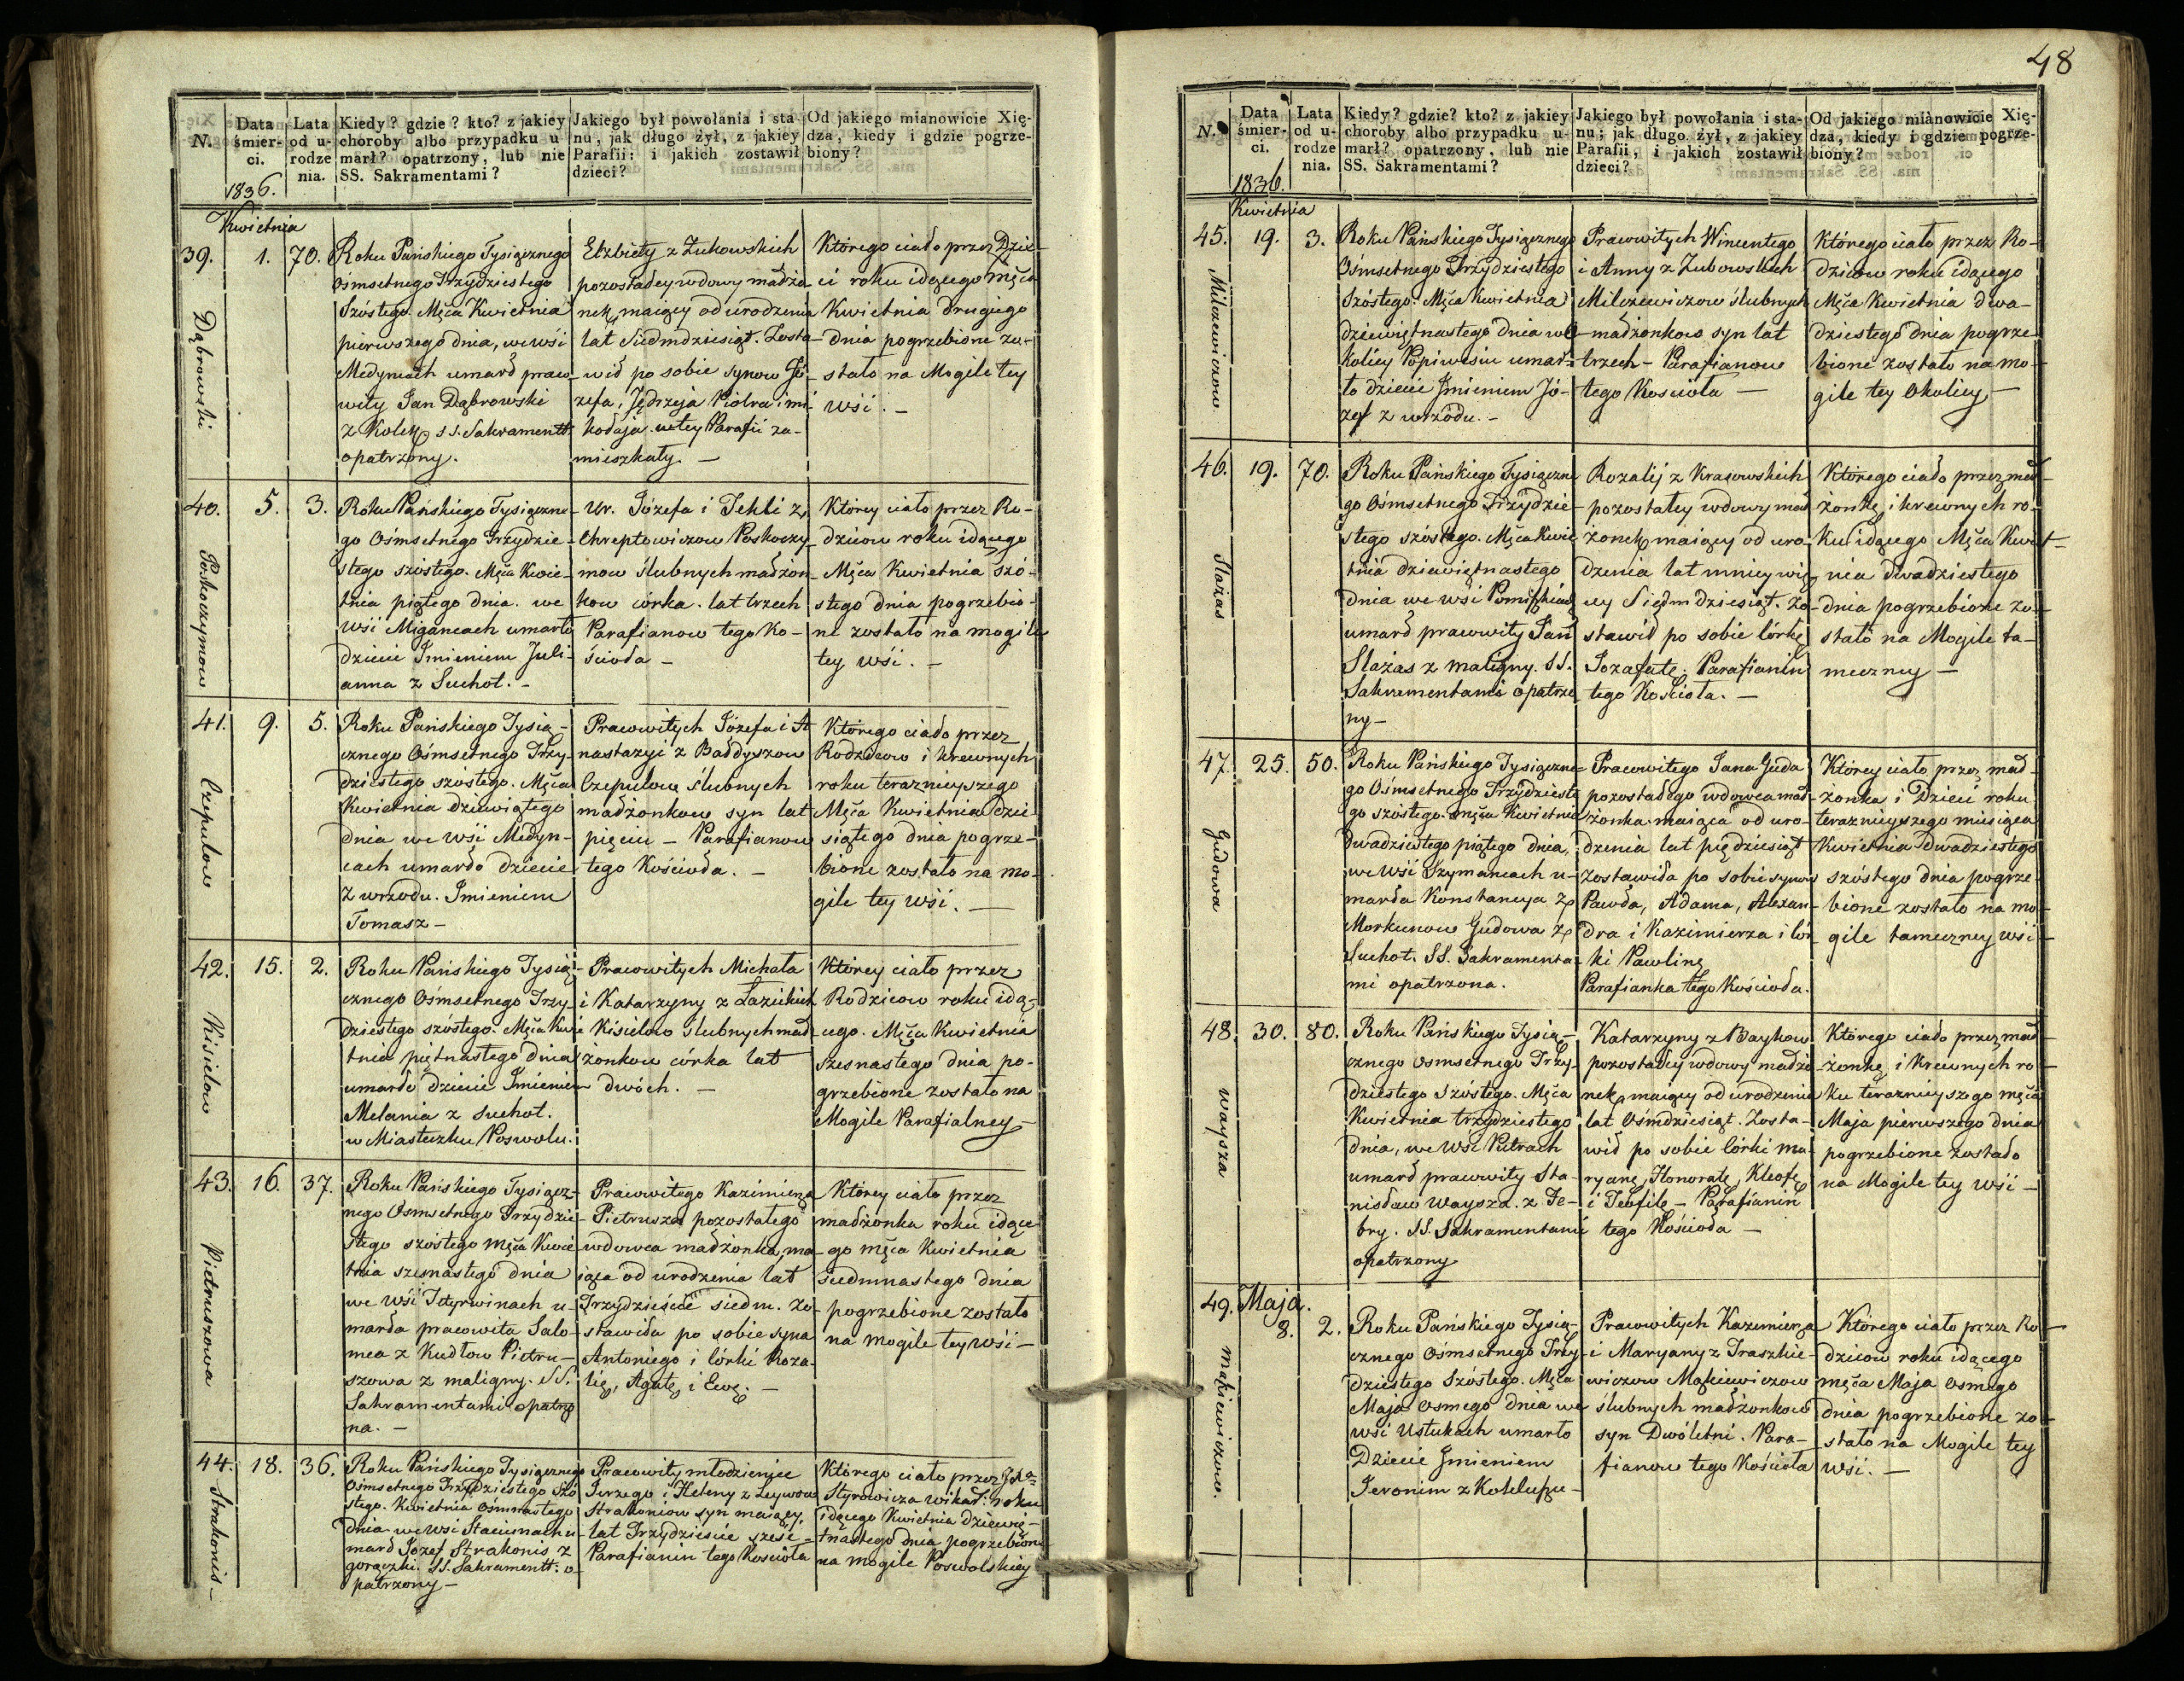 N.
Data
śmier-
ci.
1836.
Lata
od u-
rodze
nia.
Kiedy? gdzie? kto? z jakiey
choroby albo przypadku u
marł? opatrzony, lub nie
SS. Sakramentami?
Jakiego był powołania i sta-
nu, jak długo żył, z jakiey
Parafii; i jakich zostawił
dzieci?
Od jakiego mianowicie Xię-
dza, kiedy i gdzie pogrze-
biony?
Kwietnia
39.
Dąbrowski
1.
70.
Roku Pańskiego Tysiącznego
Ośmsetnego Trzydziestego
Szóstego. Mca Kwietnia
pierwszego dnia, we wśi
Medyncach umarł praco-
wity Jan Dąbrowski
z Kolek, SS. Sakramentt
opatrzony.
Elzbiety z Żukowskich
pozostałey wdowy małżo-
nek, maiący od urodzenia
lat Siedmdziesiąt. Zosta-
wił po sobie synow Jó-
zefa, Jędrzeja Piotra i mi-
kołaja. w tey Parafii za-
mieszkały. —
Którego ciało przez Dzie-
ci roku idącego Mca
Kwietnia drugiego
dnia pogrzebione zo-
stało na Mogile tey
wśi. -
40.
Poskoczynow
5.
3.
Roku Pańskiego Tysiączne-
go Ośmsetnego Trzydzie-
stego szóstego. Mca Kwie-
tnia piątego dnia. we
wśi Migancach umarło
dziecie Imieniem Juli-
anna z Suchot. -
Ur. Józefa i Tekli z
Chreptowiczow Poskoczy-
now ślubnych małżon-
kow córka. lat trzech
Parafianow tego Ko-
ścioła -
Którey ciało przez Ro-
dzicow roku idącego
Mca Kwietnia szó-
stego dnia pogrzebio-
ne zostało na mogile
tey wśi. -
41.
Czepulow
9.
5.
Roku Pańskiego Tysią-
cznego Ośmsetnego Trzy-
dziestego szóstego. Mca
Kwietnia dziewiątego
dnia we wśi Medyn-
cach umarło dziecie
z wrzodu. Imieniem
Tomasz -
Pracowitych Józefa i A
nastazyi z Bałdyszow
Czepulow ślubnych
małżonkow syn lat
pięciu - Parafianow
tego Kościoła. -
Którego ciało przez
Rodzicow i krewnych
roku teraznieyszego
Mca Kwietnia dzie-
siątego dnia pogrze-
bione zostało na mo-
gile tey wśi. —
42.
Kisielow
15.
2.
Roku Pańskiego Tysią-
cznego Ośmsetnego Trzy-
dziestego szóstego. Mca Kwie
tnia piętnastego dnia
umarło dziecie Imieniem
Melania z suchot.
w Miasteczku Poswolu.
Pracowitych Michała
i Katarzyny z Łazickich
Kisielow slubnych mał-
żonkow córka lat
dwóch. -
Którey ciało przez
Rodzicow roku idą-
cego. Mca Kwietnia
szesnastego dnia po-
grzebione zostało na
Mogile Parafialney -
43.
Pietruszowa
16.
37.
Roku Pańskiego Tysiącz-
nego Ośmsetnego Trzydzie-
stego szóstego Mca Kwie
tnia szesnastego dnia
we wśi Ityrwinach u-
marła pracowita Salo-
mea z Kudłow Pietru-
szowa z maligny. SS.
Sakramentami opatrzo
na. -
Pracowitego Kazimierza
Pietrusza pozostałego
wdowca małżonka, ma-
iąca od urodzenia lat
Trzydzieście siedm. Zo-
stawiła po sobie syna
Antoniego i Córki Roza-
lię, Agatę i Ewę. -
Którey ciało przez
małżonka roku idące
go Mca Kwietnia
siedmnastego dnia
pogrzebione zostało
na mogile tey wśi -
44.
Strakonis -
18.
36.
Roku Pańskiego Tysiącznego
Ośmsetnego Trzydziestego Szó
stego. Kwietnia Ośmnastego
dnia we wsi Staciunach u-
marł Jozef Strakonis z
gorączki. SS. Sakramentt. o-
patrzony -
Pracowity młodzieniec
Jerzego i Heleny z
Strakoniow syn maiący.
lat Trzydzieście sześć -
Parafianin tego Kościoła
Którego ciało przez
Styrowicza wikar: roku
idącego Kwietnia dziewię-
tnastego dnia pogrzebione
na mogile Poswolskiey
48
N.
Data
śmier-
ci.
1836.
Lata
od u-
rodze
nia.
Kiedy? gdzie? kto? z jakiey
choroby albo przypadku u-
marł? opatrzony, lub nie
SS. Sakramentami?
Jakiego był powołania i sta-
nu; jak długo żył, z jakiey
Parafii, i jakich zostawił
dzieci?
Od jakiego mianowicie Xię-
dza, kiedy i gdzie pogrze-
biony?
Kwietnia
45.
Milczewiczow
19.
3.
Roku Pańskiego Tysiącznego
Ośmsetnego Trzydziestego
Szóstego. Mca Kwietnia
dziewiętnastego dnia w O-
kolicy Popiwesiu umar-
ło dziecie Imieniem Jó-
zef z wrzodu. -
Pracowitych Wincentego
i Anny z Zubowskich
Milczewiczow ślubnych
małżonkow syn lat
trzech - Parafianow
tego Kościoła -
Którego ciało przez Ro-
dzicow roku idącego
Mca Kwietnia dwa-
dziestego dnia pogrze-
bione zostało na mo-
gile tey Okolicy -
46.
Slażas
19.
70.
Roku Pańskiego Tysiączne
go Ośmsetnego Trzydzie-
stego szóstego. Mca Kwie
tnia dziewiętnastego
dnia we wsi
umarł pracowity Jan
Slażas z maligny. SS.
Sakramentami opatrzo
ny -
Rozalij z Krasowskich
pozostałey wdowy mał
żonek, maiący od uro-
dzenia lat mniey wię
cey Siedmdziesiąt. Zo-
stawił po sobie Córkę
Jozafatę. Parafianin
tego Kościoła. -
Którego ciało przez mał-
żonkę i krewnych ro-
ku idącego Mca Kwiet-
nia dwadziestego
dnia pogrzebione zo-
stało na Mogile ta-
meczney -
47.
Gudowa
25.
50.
Roku Pańskiego Tysiączne-
go Ośmsetnego Trzydzieste
go szóstego. Mca Kwietnia
dwadziestego piątego dnia,
we wśi Szymancach u-
marła Konstancya z
Morkunow Gudowa z
Suchot. SS. Sakramenta-
mi opatrzona.
Pracowitego Jana Guda
pozostałego wdowca mał-
żonka. maiąca od uro-
dzenia lat pięćdziesiąt
zostawiła po sobie synow
Pawła, Adama, Alexan-
dra i Kazimierza i Cór
ki Pawlinę
Parafianka tego Kościoła.
Którey ciało przez mał-
żonka i Dzieci roku
teraznieyszego miesiąca
Kwietnia Dwadziestego
szóstego dnia pogrze-
bione zostało na mo-
gile tameczney wśi -
48.
Waysza
30.
80.
Roku Pańskiego Tysią-
cznego Osmsetnego Trzy-
dziestego Szóstego. Mca
Kwietnia trzydziestego
dnia, we wśi Putrach
umarł pracowity Sta-
nisław Waysza. z Fe-
bry. SS. Sakramentami
opatrzony
Katarzyny z Baykow
pozostałey wdowy małżo
nek, maiący od urodzenia
lat Ośmdziesiąt. Zosta-
wił po sobie Córki Ma-
ryanę, Honoratę, Kleofę
i Teofilę - Parafianin
tego Kościoła -
Którego ciało przez mał-
żonkę i krewnych ro-
ku teraznieyszego mca
Maja pierwszego dnia
pogrzebione zostało
na Mogile tey wśi -
49.
Mackiewiczow.
Maja.
8.
2.
Roku Pańskiego Tysią-
cznego Osmsetnego Trzy-
dziestego Szóstego. Mca
Maja Osmego dnia we
wśi Ustukach umarło
Dziecie Imieniem
Jeronim z Kokluszu -
Pracowitych Kazimierza
i Maryany z Traszkie-
wiczow Mackiewiczow
ślubnych małżonkow
syn Dwóletni. Para-
fianow tego Kościoła
Którego ciało przez Ro-
dzicow roku idącego
mca Maja Osmego
dnia pogrzebione zo-
stało na Mogile tey
wśi. -